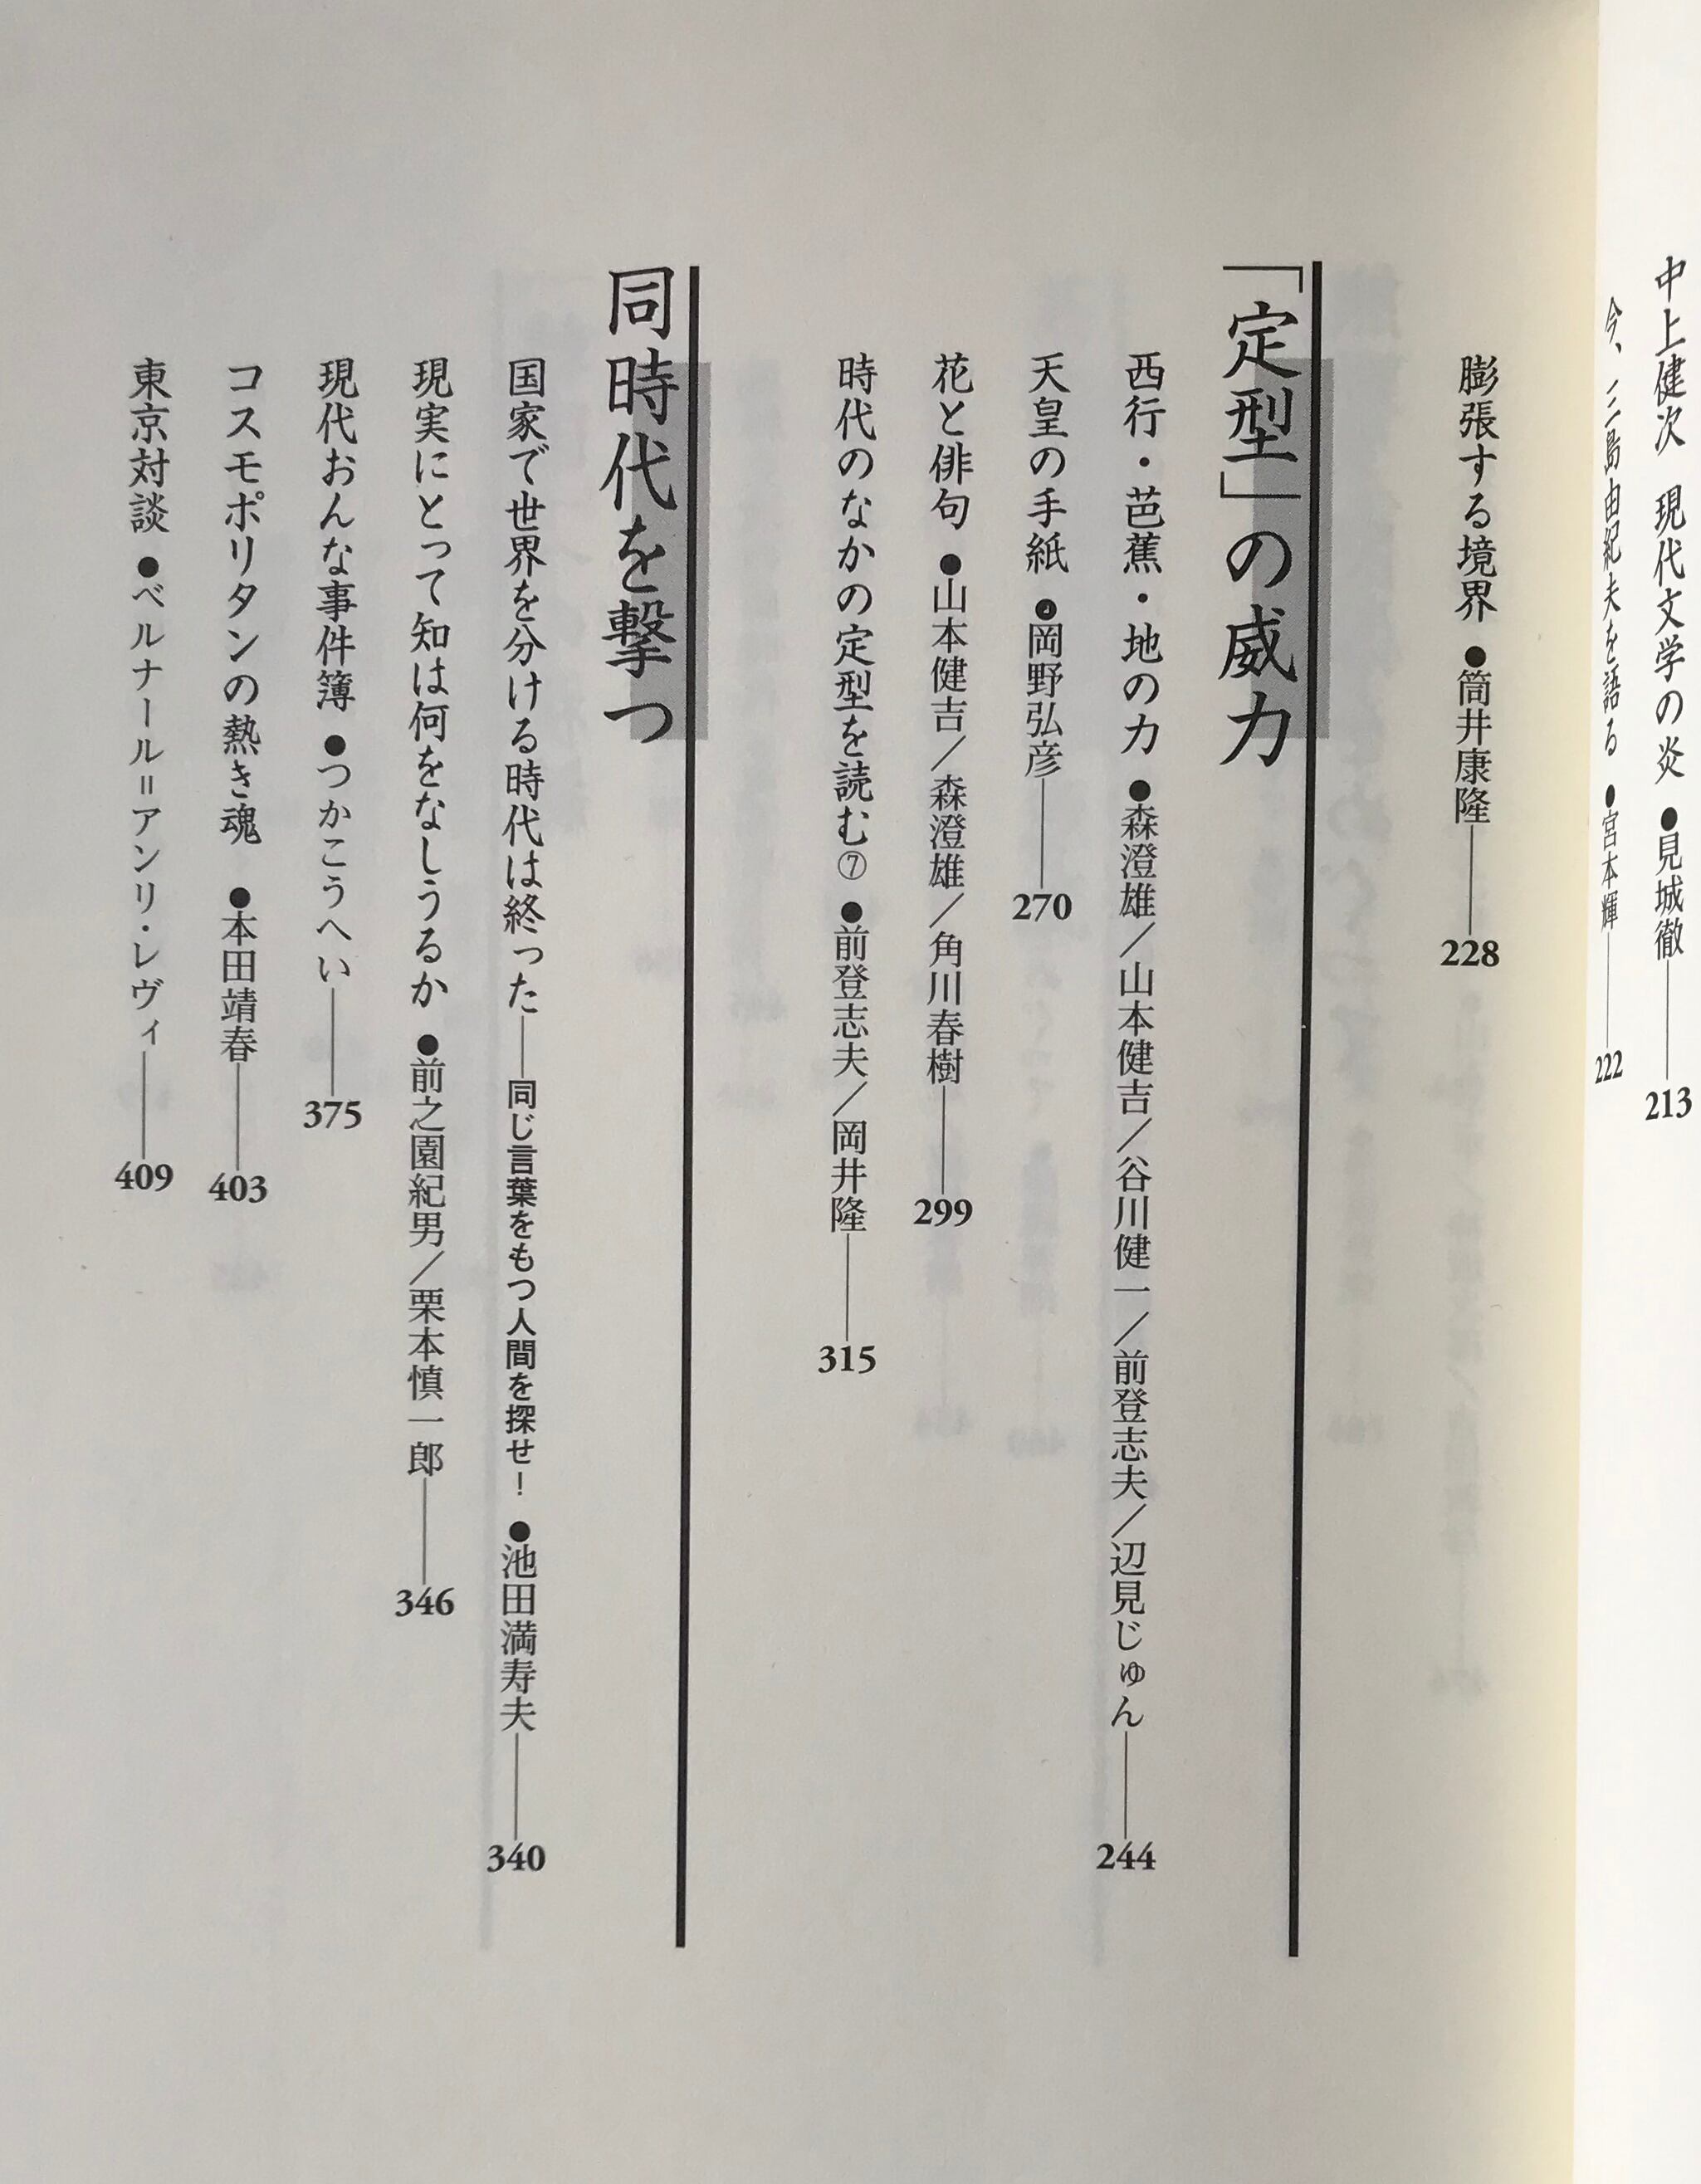 中上健次 現代文学の炎 ●見城徹——213
今、三島由紀夫を語る ●宮本輝——222
膨張する境界 ●筒井康隆——228
「定型」の威力
西行・芭蕉・地の力 ●森澄雄／山本健吉／谷川健一／前登志夫／辺見じゅん——244
天皇の手紙 ●岡野弘彦——270
花と俳句 ●山本健吉／森澄雄／角川春樹——299
時代のなかの定型を読む⑦ ●前登志夫／岡井隆——315
同時代を撃つ
国家で世界を分ける時代は終った——同じ言葉をもつ人間を探せ！ ●池田満寿夫——340
現実にとって知は何をなしうるか ●前之園紀男／栗本慎一郎——346
現代おんな事件簿 ●つかこうへい——375
コスモポリタンの熱き魂 ●本田靖春——403
東京対談 ●ベルナール＝アンリ・レヴィ——409